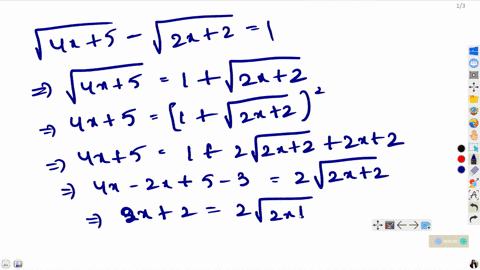 √(4x+5) - √(2x+2) = 1
⇒ √(4x+5) = 1 + √(2x+2)
⇒ 4x+5 = (1 + √(2x+2))²
⇒ 4x+5 = 1 + 2√(2x+2) + 2x+2
⇒ 4x-2x+5-3 = 2√(2x+2)
⇒ 2x+2 = 2√(2x!
1/3